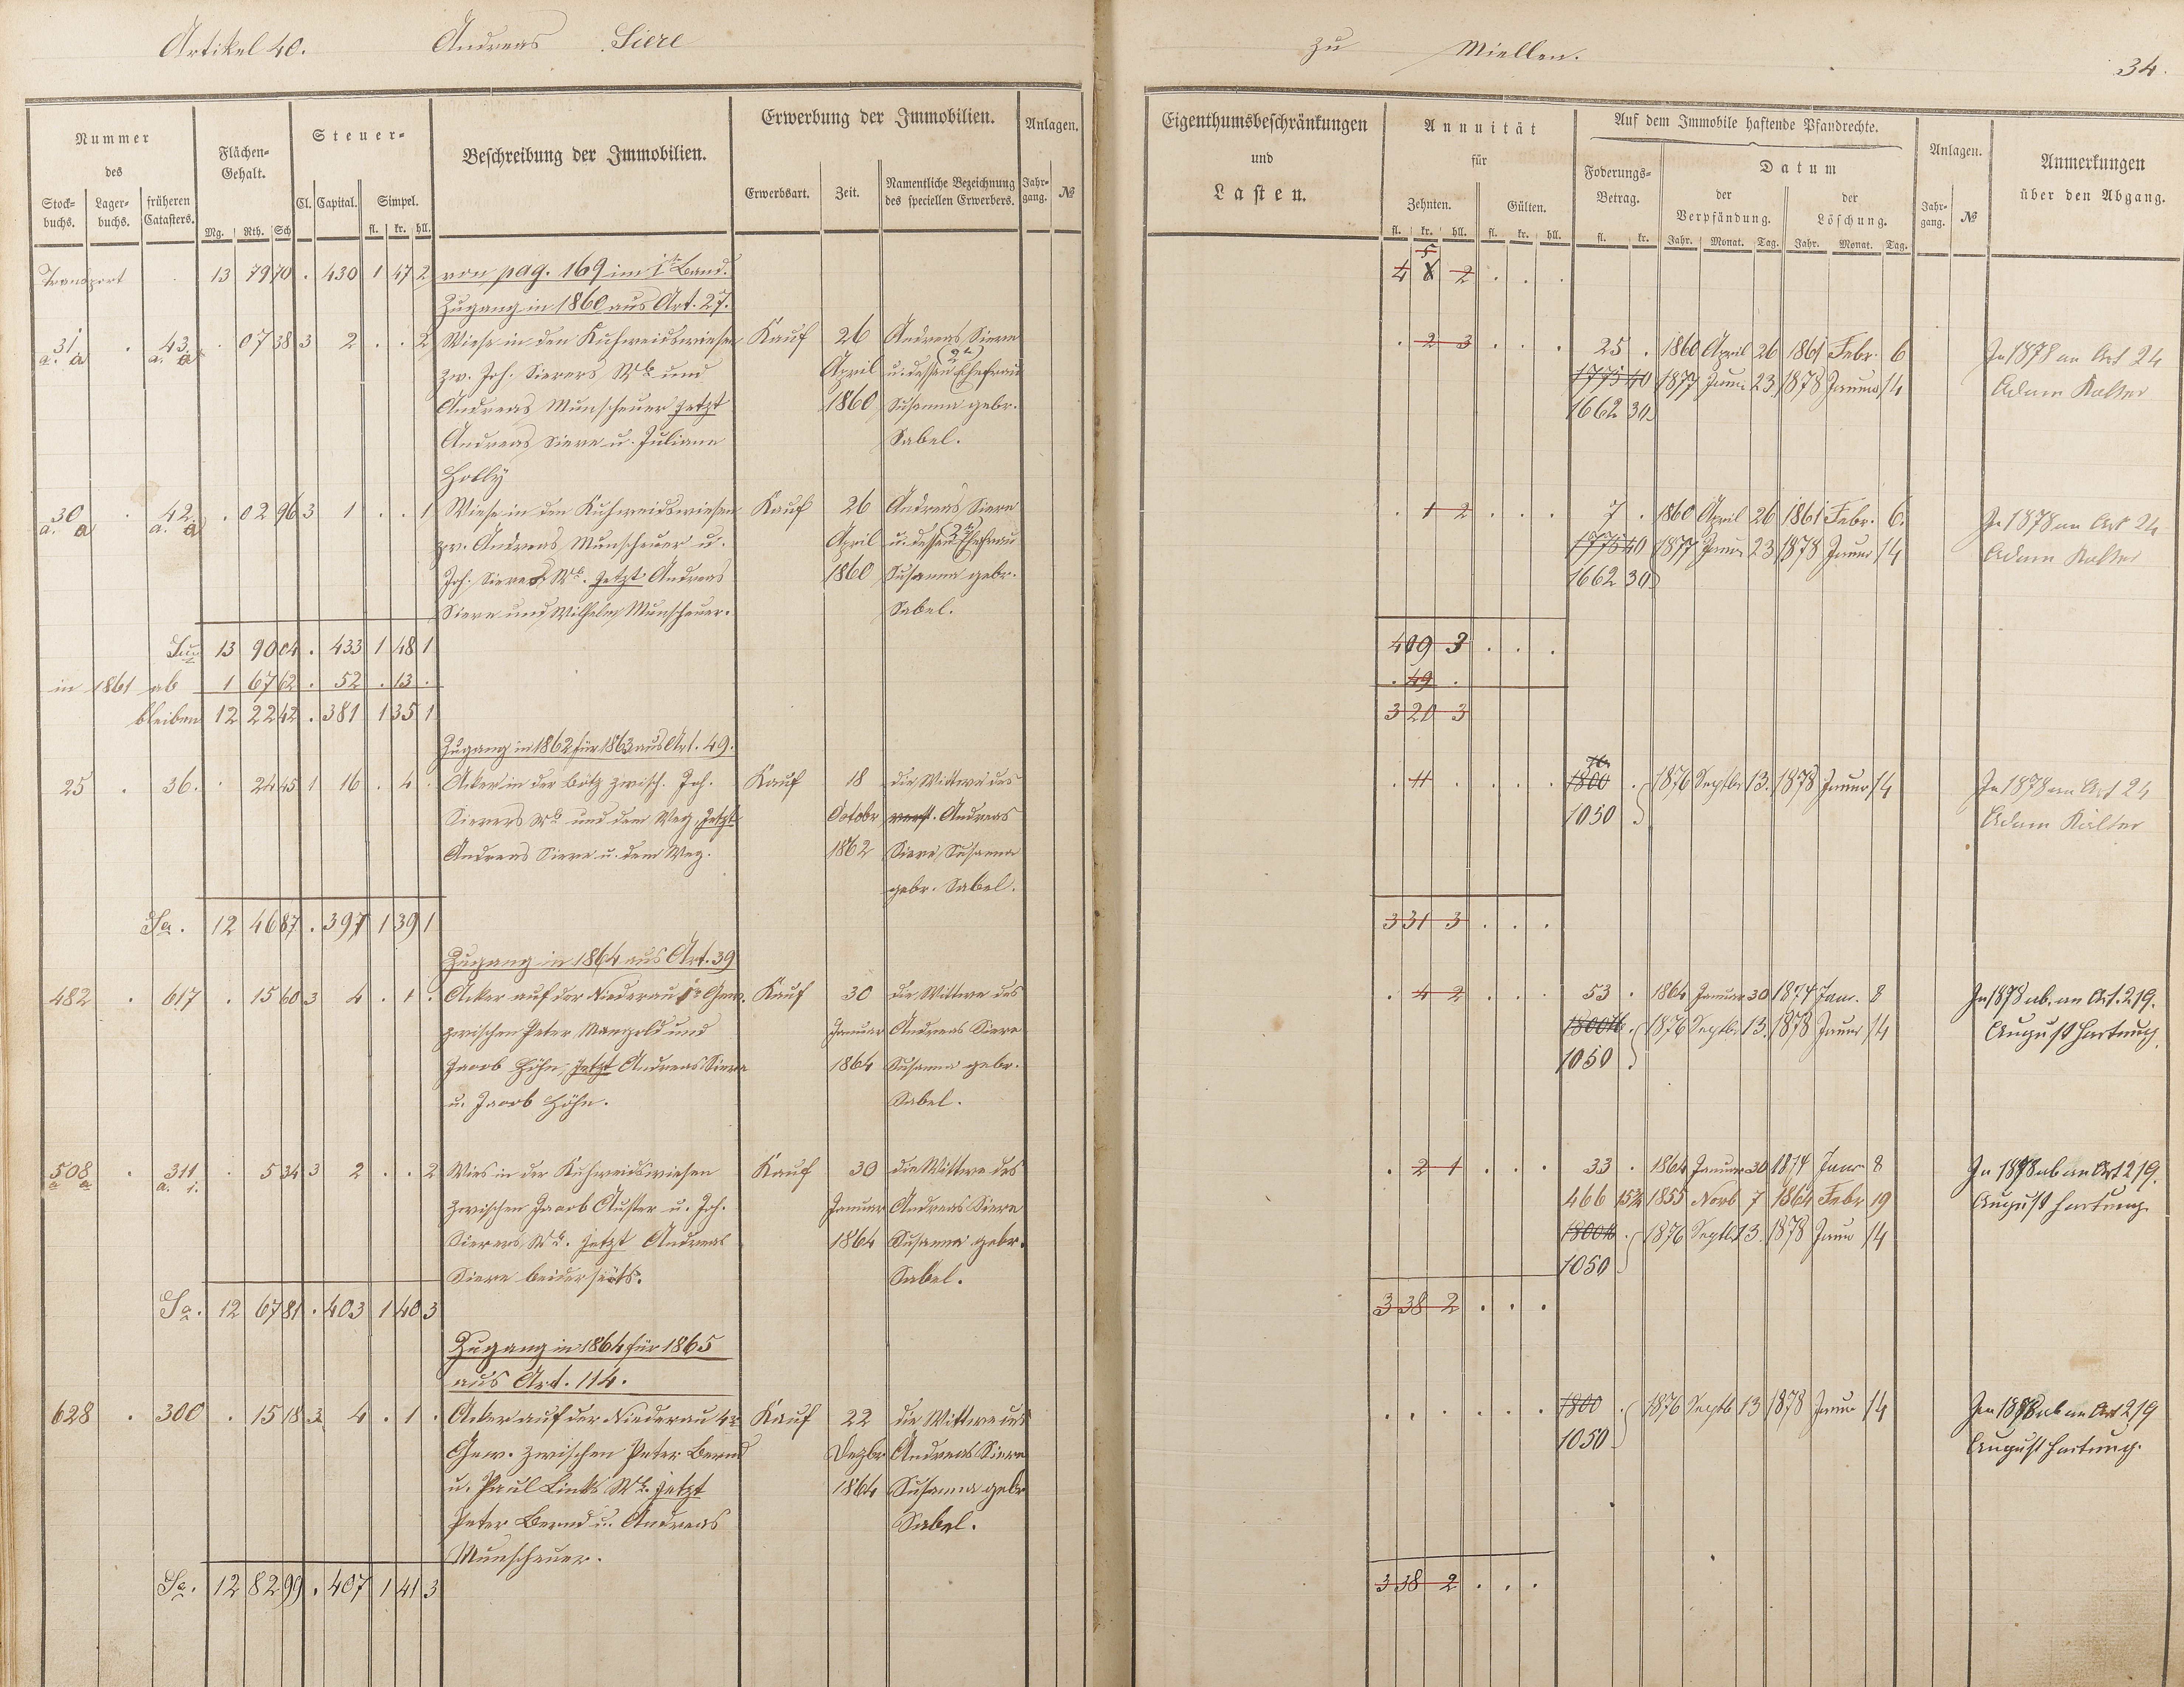 Artikel 40. Andreas Siere
zu Miellen. 34.
Nummer des
Stock-buchs. Lager-buchs. früheren Catasters.
Flächen-Gehalt.
Mg. Rth. Sch
Steuer-
Cl. Capital. Simpel.
fl. kr. hll.
Beschreibung der Immobilien.
Erwerbung der Immobilien.
Erwerbsart. Zeit. Namentliche Bezeichnung des speciellen Erwerbers.
Anlagen.
Jahr-gang. №
Eigenthumsbeschränkungen
und
Lasten.
Annuität
für
Zehnten. Gülten.
fl. kr. hll. fl. kr. hll.
Auf dem Immobile haftende Pfandrechte.
Foderungs-Betrag.
fl. kr.
Datum
der Verpfändung. der Löschung.
Jahr. Monat. Tag. Jahr. Monat. Tag.
Anlagen.
Jahr-gang. №
Anmerkungen
über den Abgang.
Transport 13 79 70 . 430 1 47 2 von pag. 169 im 1t Band. 4 5 2
Zugang in 1860 aus Art. 27.
31 a. a . 43 a. a . 07 38 3 2 . . 2 Wiese in den Kuhweidswiesen Kauf 26 Andreas Siere . 2 3 . . . 25 . 1860 April 26 1861 Febr. 6 In 1878 an Art 24
zw. Joh. Sierers Wb und April u. dessen (2te) Ehefrau 1775 40 1877 Juni 23 1878 Januar 14 Adam Kalter
Andreas Munscheuer jetzt 1860 Susanna gebr. 1662 30
Andreas Siere u. Juliane Sabel.
Holly
30 a. a . 42 a. a . 02 96 3 1 . . 1 Wiese in den Kuhweidswiesen Kauf 26 Andreas Siere . 1 2 . . . 7 . 1860 April 26 1861 Febr. 6. In 1878 an Art 24
zw. Andreas Munscheuer u. April u. dessen (2te) Ehefrau 1775 40 1877 Juni 23 1878 Januar 14 Adam Kalter
Joh. Sierers Wb. jetzt Andreas 1860 Susanna gebr. 1662 30
Siere und Wilhelm Munscheuer. Sabel.
Sua 13 90 04 . 433 1 48 1 4 09 3 . . .
in 1861 ab 1 67 62 . 52 . 13 . . 49 .
bleiben 12 22 42 . 381 1 35 1 3 20 3
Zugang in 1862 für 1863 aus Art. 49.
25 . 36. . 24 45 1 16 . 4 . Acker in der Bitz zwisch. Joh. Kauf 18 die Wittwe des . 11 . . . . 1800 . 1876 Septbr 13. 1878 Januar 14 In 1878 an Art 24
Sierers Wb und dem Weg, jetzt Octobr verst. Andreas 1050 Adam Kalter
Andreas Siere u. dem Weg. 1862 Siere, Susanna
gebr. Sabel.
Sa. 12 46 87 . 397 1 39 1 3 31 3 . . .
Zugang in 1864 aus Art. 39
482 . 617 . 15 60 3 4 . 1 . Acker auf der Niederau 1r Gew. Kauf 30 die Wittwe des . 4 2 . . . 53 . 1864 Januar 30 1874 Janr. 8 In 1878 ab. an Art. 219.
zwischen Peter Mangold und Januar Andreas Siere 1800 . 1876 Septbr 13. 1878 Januar 14 August Hartung.
Jacob Höhn, jetzt Andreas Siere 1864 Susanna gebr. 1050
u. Jacob Höhn. Sabel.
508 a a . 311 a. 1. . 5 34 3 2 . . 2 Wies in der Kuhweidswiesen Kauf 30 die Wittwe des . 2 1 . . . 33 . 1864 Januar 30 1874 Janr 8 In 1878 ab an Art 219.
zwischen Jacob Auster u. Joh. Januar Andreas Siere 466 15 2 1855 Novb 7 1864 Febr 19 August Hartung.
Sierers, Wb. jetzt Andreas 1864 Susanna gebr. 1800 . 1876 Septb 13. 1878 Janr 14
Siere beiderseits. Sabel. 1050
Sa. 12 67 81 . 403 1 40 3 3 38 2 . . .
Zugang in 1864 für 1865
aus Art. 114.
628 . 300 . 15 18 3 4 . 1 . Acker auf der Niederau 4r Kauf 22 die Wittwe des . . . . . . 1800 . 1876 Septb 13 1878 Januar 14 In 1878 ab an Art 219
Gew. zwischen Peter Bernd Dezbr Andreas Siere 1050 August Hartung.
u. Paul Links Wb. jetzt 1864 Susanna gebr
Peter Bernd u. Andreas Sabel.
Munscheuer.
Sa. 12 82 99 . 407 1 41 3 3 38 2 . . .